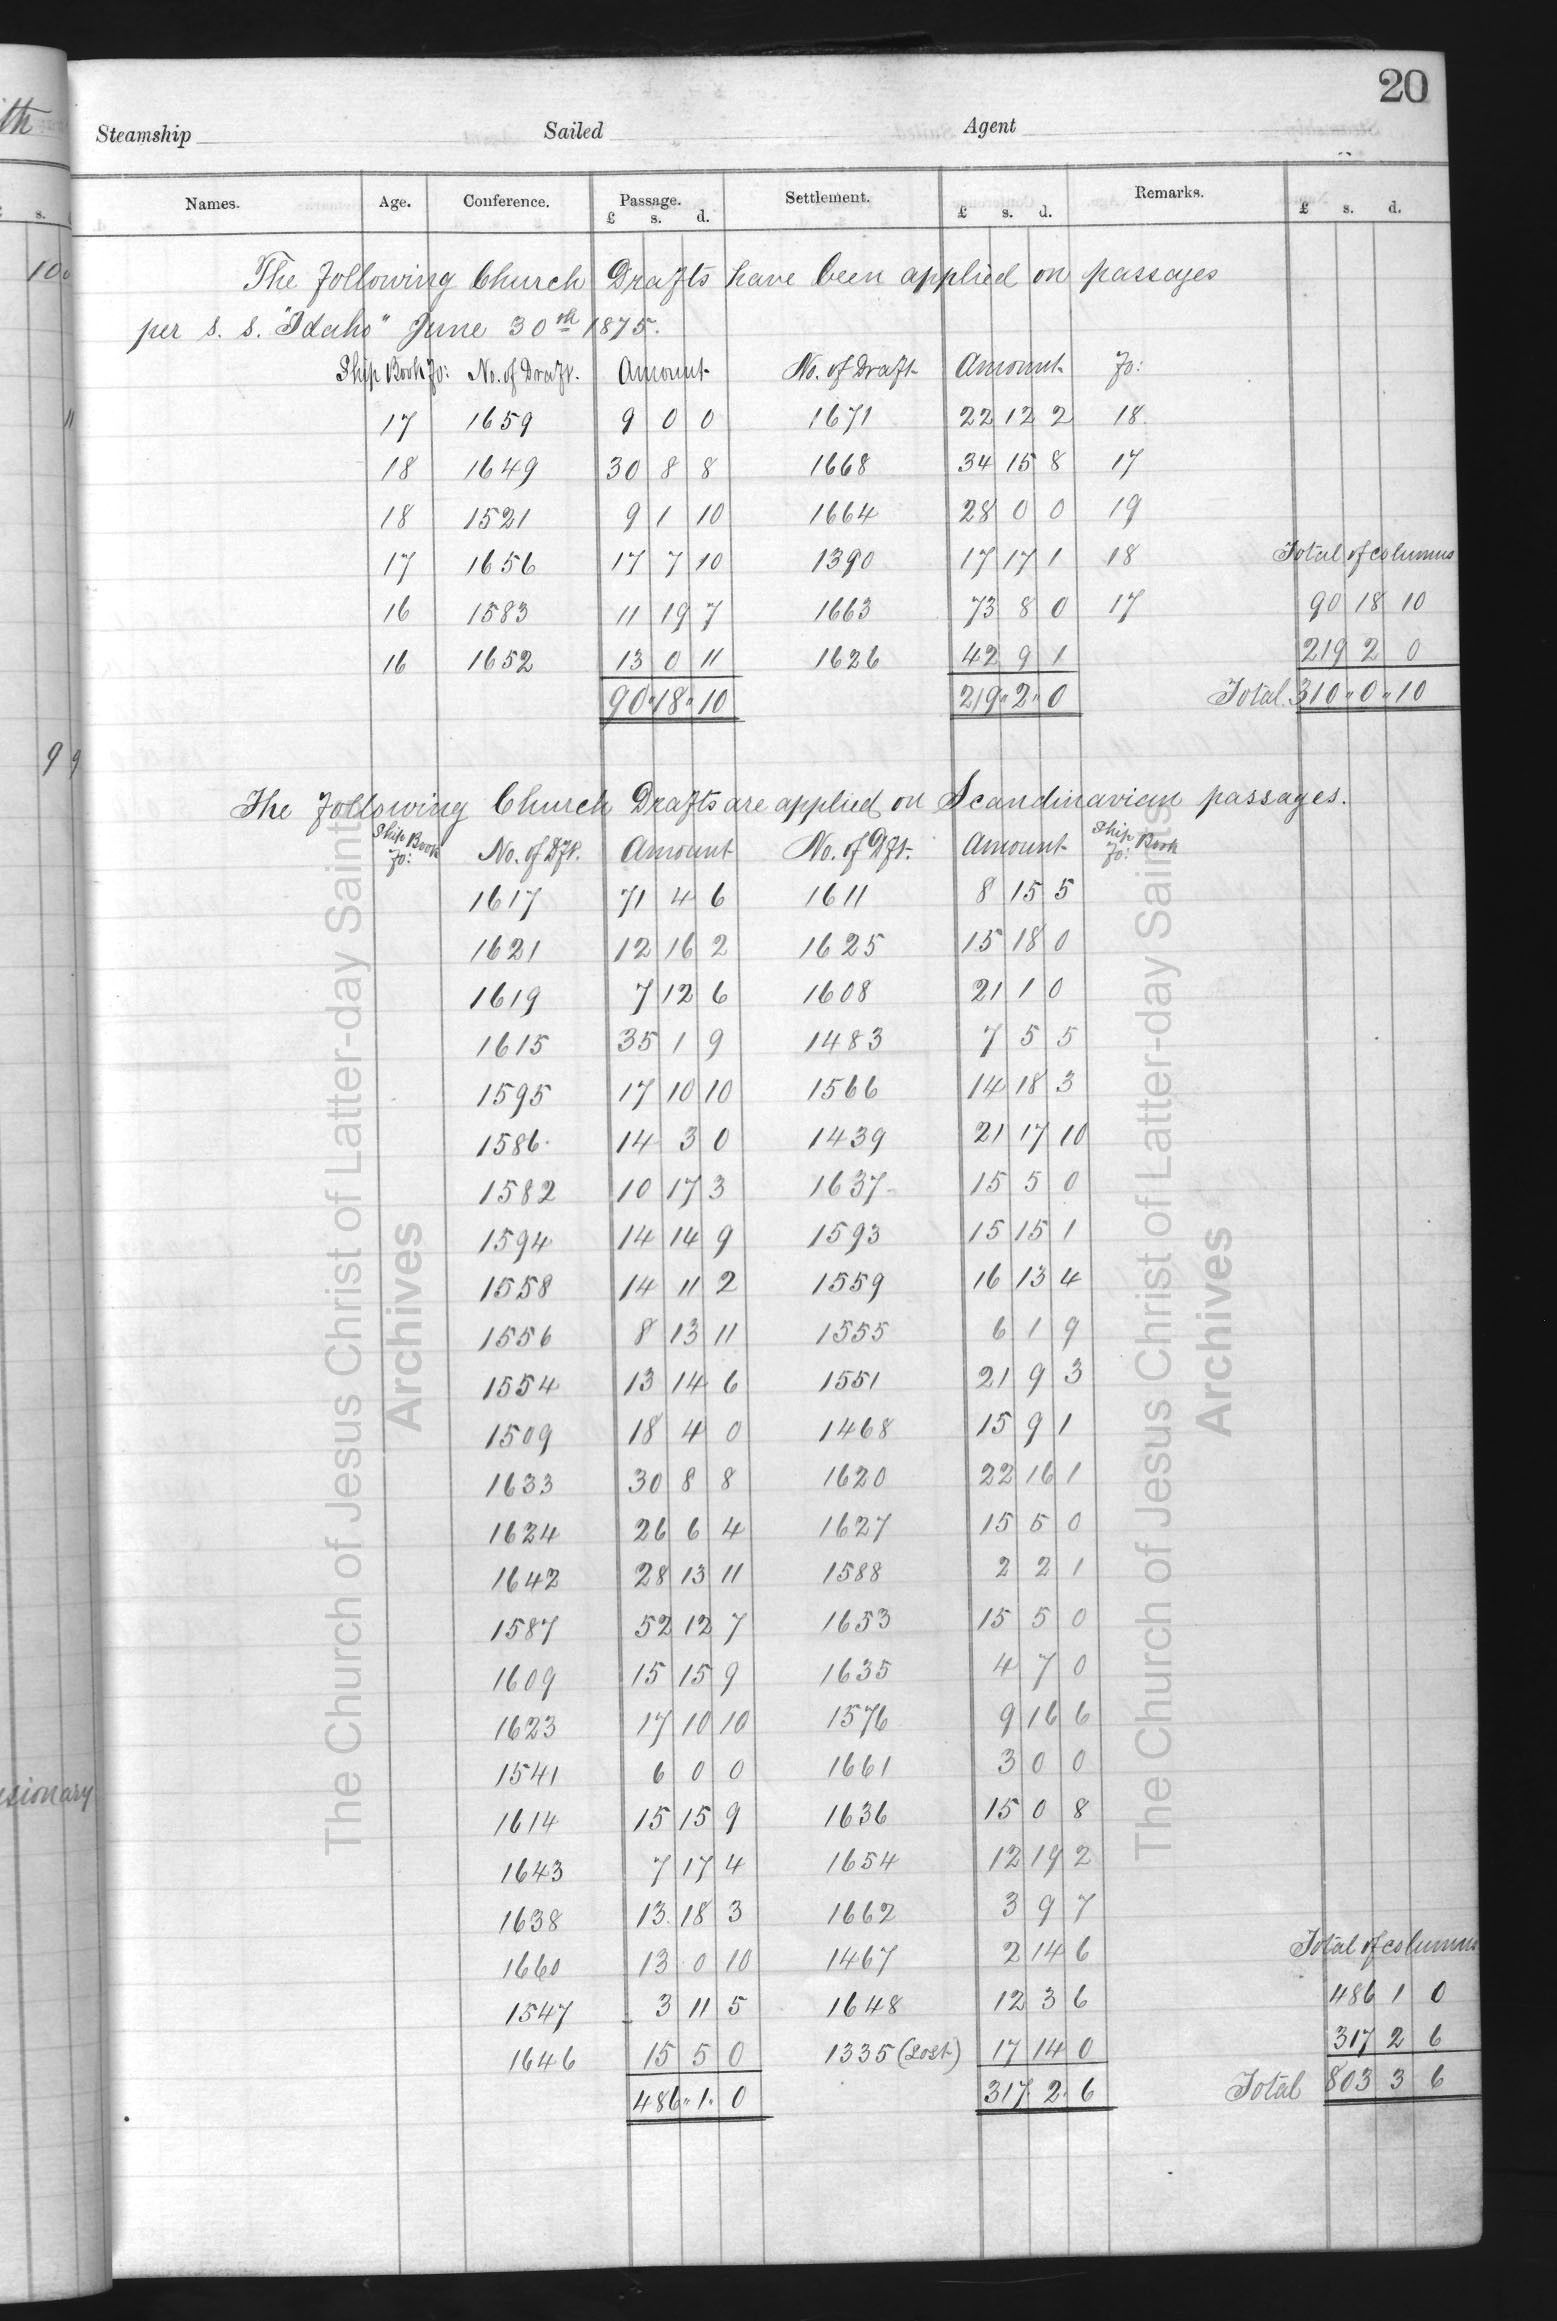 20
Steamship Sailed Agent
Names. Age. Conference. Passage. Settlement. Remarks.
£ s. d. £ s. d. £ s. d.
The following Church Drafts have been applied on passages
per s. s. "Idaho" June 30th 1875.
Ship Book Fo: No. of Draft. Amount No. of Draft Amount Fo:
17 1659 9 0 0 1671 22 12 2 18
18 1649 30 8 8 1668 34 15 8 17
18 1521 9 1 10 1664 28 0 0 19
17 1656 17 7 10 1390 17 17 1 18 Total of columns
16 1583 11 19 7 1663 73 8 0 17 90 18 10
16 1652 13 0 11 1626 42 9 1 219 2 0
90 " 18 " 10 219 " 2 " 0 Total 310 " 0 " 10
The following Church Drafts are applied on Scandinavian passages.
Ship Book Fo: No. of Dft. Amount No. of Dft. Amount Ship Book Fo:
1617 71 4 6 1611 8 15 5
1621 12 16 2 1625 15 18 0
1619 7 12 6 1608 21 1 0
1615 35 1 9 1483 7 5 5
1595 17 10 10 1566 14 18 3
1586 14 3 0 1439 21 17 10
1582 10 17 3 1637 15 5 0
1594 14 14 9 1593 15 15 1
1558 14 11 2 1559 16 13 4
1556 8 13 11 1555 6 1 9
1554 13 14 6 1551 21 9 3
1509 18 4 0 1468 15 9 1
1633 30 8 8 1620 22 16 1
1624 26 6 4 1627 15 5 0
1642 28 13 11 1588 2 2 1
1587 52 12 7 1653 15 5 0
1609 15 15 9 1635 4 7 0
1623 17 10 10 1576 9 16 6
1541 6 0 0 1661 3 0 0
1614 15 15 9 1636 15 0 8
1643 7 17 4 1654 12 19 2
1638 13 18 3 1662 3 9 7
1660 13 0 10 1467 2 14 6 Total of columns
1547 3 11 5 1648 12 3 6 486 1 0
1646 15 5 0 1335 (Lost) 17 14 0 317 2 6
486 " 1 " 0 317 2 6 Total 803 3 6
The Church of Jesus Christ of Latter-day Saints
Archives
The Church of Jesus Christ of Latter-day Saints
Archives